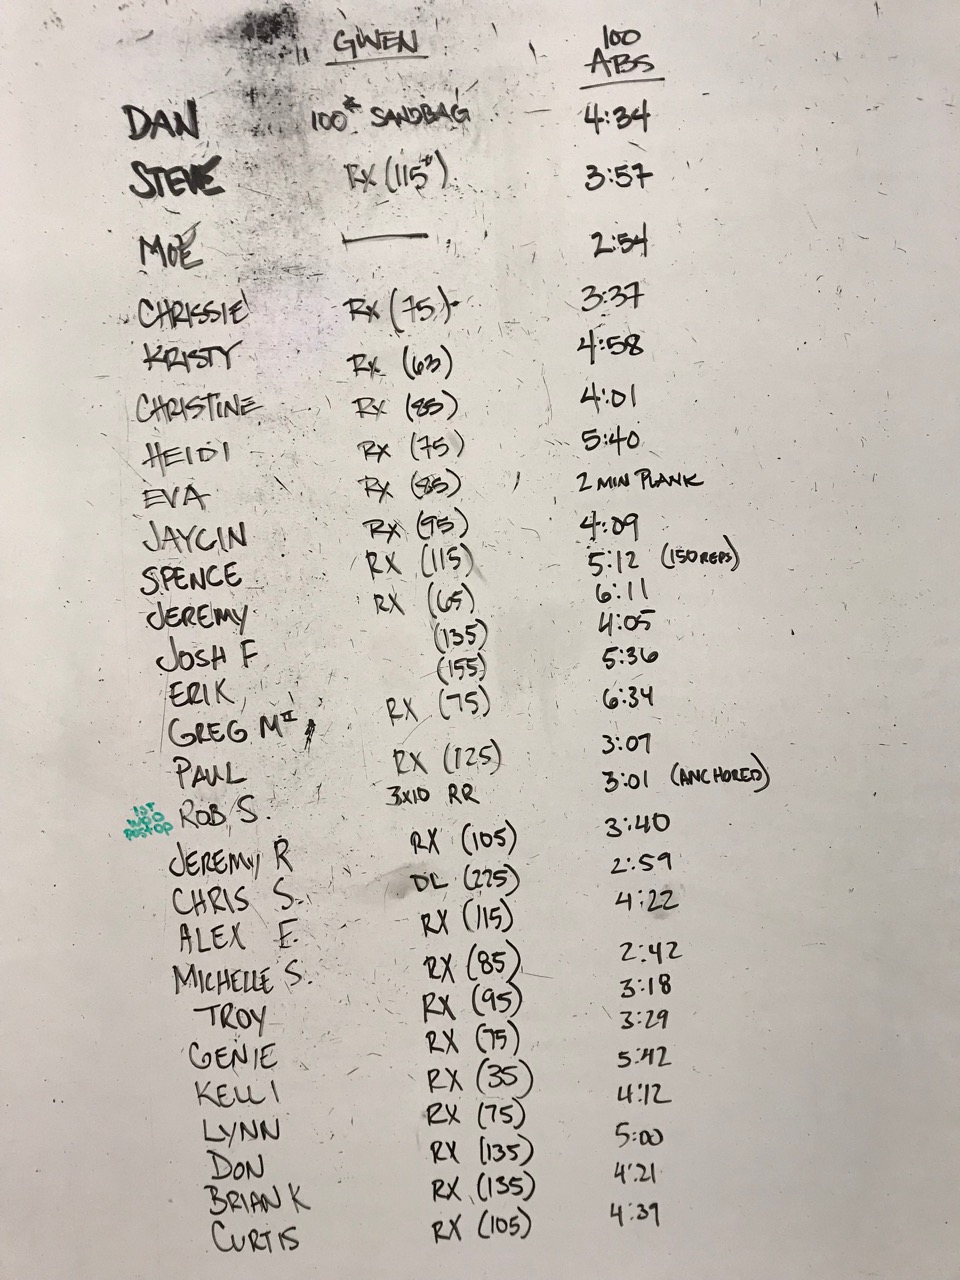 GWEN 100 ABS
DAN 100# SANDBAG 4:34
STEVE RX (115#) 3:57
MOE — 2:54
CHRISSIE RX (75) 3:37
KRISTY RX (63) 4:58
CHRISTINE RX (85) 4:01
HEIDI RX (75) 5:40
EVA RX (85) 2 MIN PLANK
JAYCIN RX (95) 4:09
SPENCE RX (115) 5:12 (150 REPS)
JEREMY RX (65) 6:11
JOSH F (135) 4:05
ERIK (155) 5:36
GREG M II RX (75) 6:34
PAUL RX (125) 3:07
1ST WOD POST OP ROB S. 3x10 RR 3:01 (ANCHORED)
JEREMY R RX (105) 3:40
CHRIS S. DL (225) 2:59
ALEX E. RX (115) 4:22
MICHELLE S. RX (85) 2:42
TROY RX (95) 3:18
GENIE RX (75) 3:29
KELLI RX (35) 5:42
LYNN RX (75) 4:12
DON RX (135) 5:00
BRIAN K RX (135) 4:21
CURTIS RX (105) 4:39